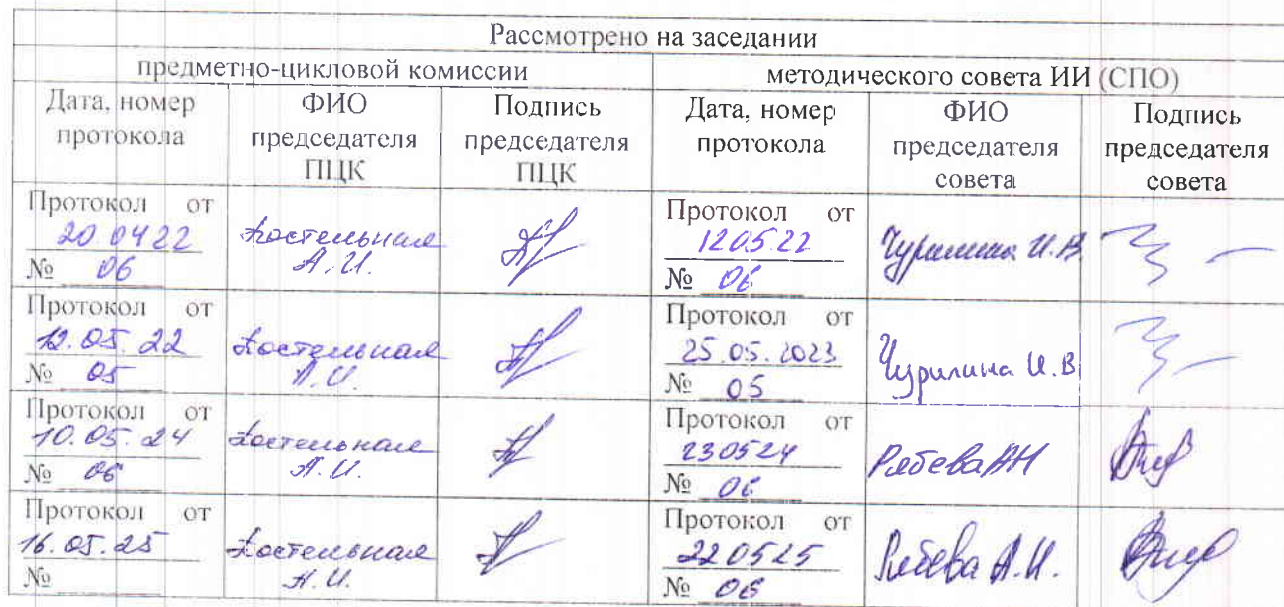 Рассмотрено на заседании
предметно-цикловой комиссии
методического совета ИИ (СПО)
Дата, номер
протокола
ФИО
председателя
ПЦК
Подпись
председателя
ПЦК
Дата, номер
протокола
ФИО
председателя
совета
Подпись
председателя
совета
Протокол от
20.0422
№ 06
Костельная
А.И.
Протокол от
120522
№ 06
Чурилина И.В.
Протокол от
12.05.22
№ 05
Костельная
А.И.
Протокол от
25.05.2023
№ 05
Чурилина И.В
Протокол от
10.05.24
№ 06
Костельная
А.И.
Протокол от
230524
№ 06
Протокол от
16.05.25
№
Костельная
А.И.
Протокол от
220525
№ 06